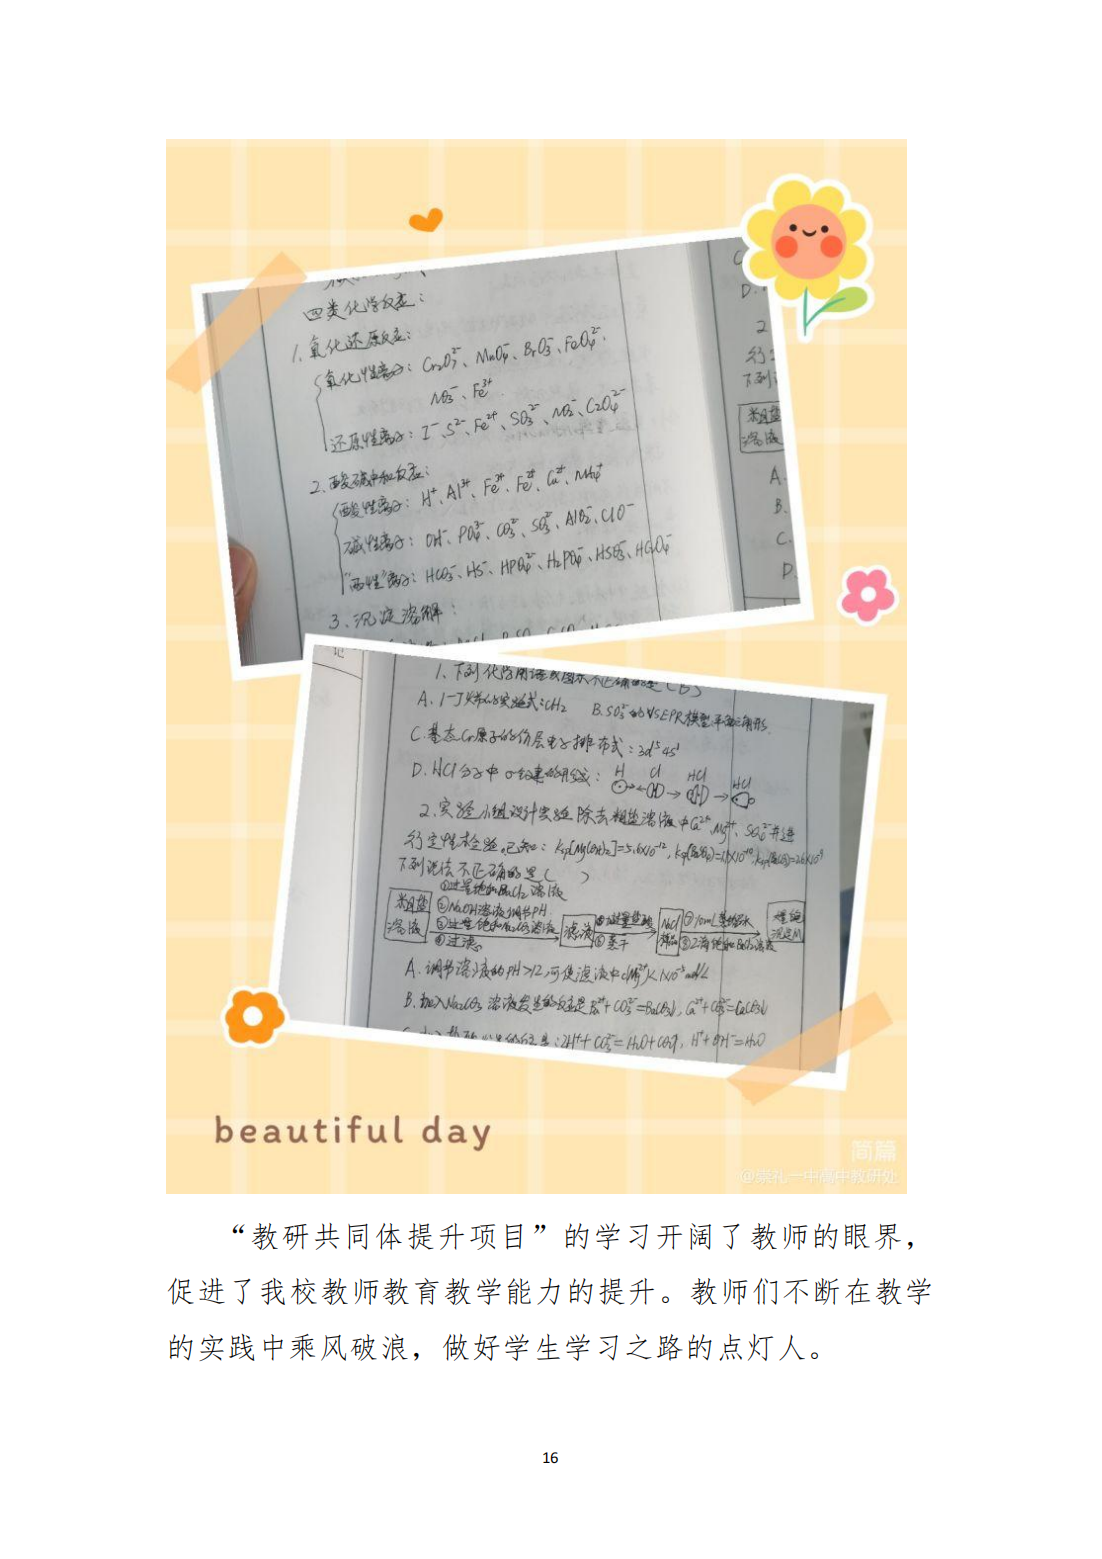 四类化学反应：
1. 氧化还原反应：
氧化性离子：Cr₂O₇²⁻、MnO₄⁻、BrO₃⁻、FeO₄²⁻、
NO₃⁻、Fe³⁺
还原性离子：I⁻、S²⁻、Fe²⁺、SO₃²⁻、NO₂⁻、C₂O₄²⁻
2. 酸碱中和反应：
酸性离子：H⁺、Al³⁺、Fe³⁺、Fe²⁺、Cu²⁺、NH₄⁺
碱性离子：OH⁻、PO₄³⁻、CO₃²⁻、SO₃²⁻、AlO₂⁻、ClO⁻
"两性"离子：HCO₃⁻、HS⁻、HPO₄²⁻、H₂PO₄⁻、HSO₃⁻、HC₂O₄⁻
3. 沉淀溶解：
D.
2
行
下列
粗盐
溶液
A.
B.
C.
D.
1. 下列化学用语或图示不正确的是（B）
A. 1-丁烯的实验式：CH₂ B. SO₃²⁻的VSEPR模型平面三角形
C. 基态Cr原子的价层电子排布式：3d⁵4s¹
D. HCl分子中σ键的形成：H Cl HCl HCl
2. 实验小组设计实验除去粗盐溶液中Ca²⁺、Mg²⁺、SO₄²⁻并进
行定性检验。已知：Ksp[Mg(OH)₂]=5.6×10⁻¹²，
下列说法不正确的是（ ）
粗盐溶液
①过量饱和BaCl₂溶液
②NaOH溶液调节pH
③过量饱和Na₂CO₃溶液
④过滤。
滤液
⑥蒸干
NaCl样品
A. 调节溶液的pH>12，可使滤液中c(Mg²⁺)<
B. 加入Na₂CO₃溶液发生的反应是Ba²⁺+CO₃²⁻=BaCO₃↓，Ca²⁺+CO₃²⁻=CaCO₃↓
：2H⁺+CO₃²⁻=H₂O+CO₂↑，H⁺+OH⁻=H₂O
beautiful day
简篇
@崇礼一中高中教研处
“教研共同体提升项目”的学习开阔了教师的眼界，
促进了我校教师教育教学能力的提升。教师们不断在教学
的实践中乘风破浪，做好学生学习之路的点灯人。
16